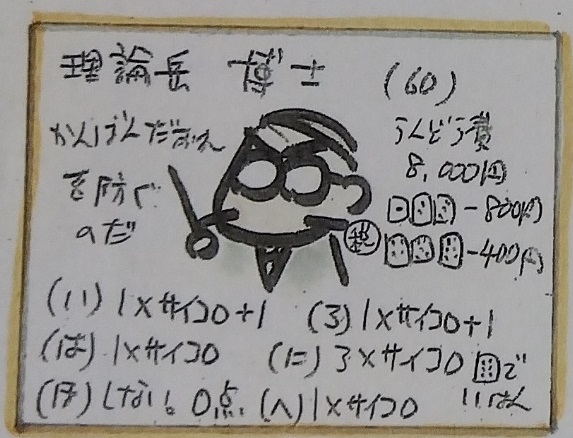 理論岳 博士 (60)
かんばんだおれ
を防ぐ
のだ
うんどう費
8,000円
-800円
税 -400円
(い) 1×サイコロ+1 (ろ) 1×サイコロ+1
(は) 1×サイコロ (に) 3×サイコロ
で
いはん
(ほ) しない。0点 (へ) 1×サイコロ